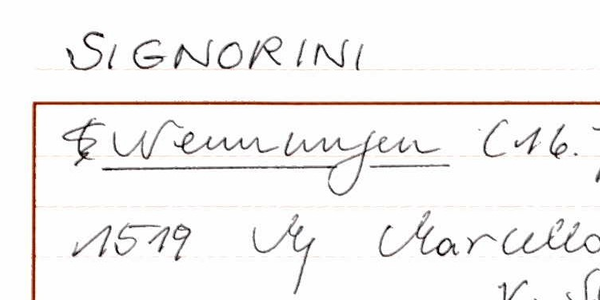 SIGNORINI
Nennungen (16.
1519 Mg Marcello